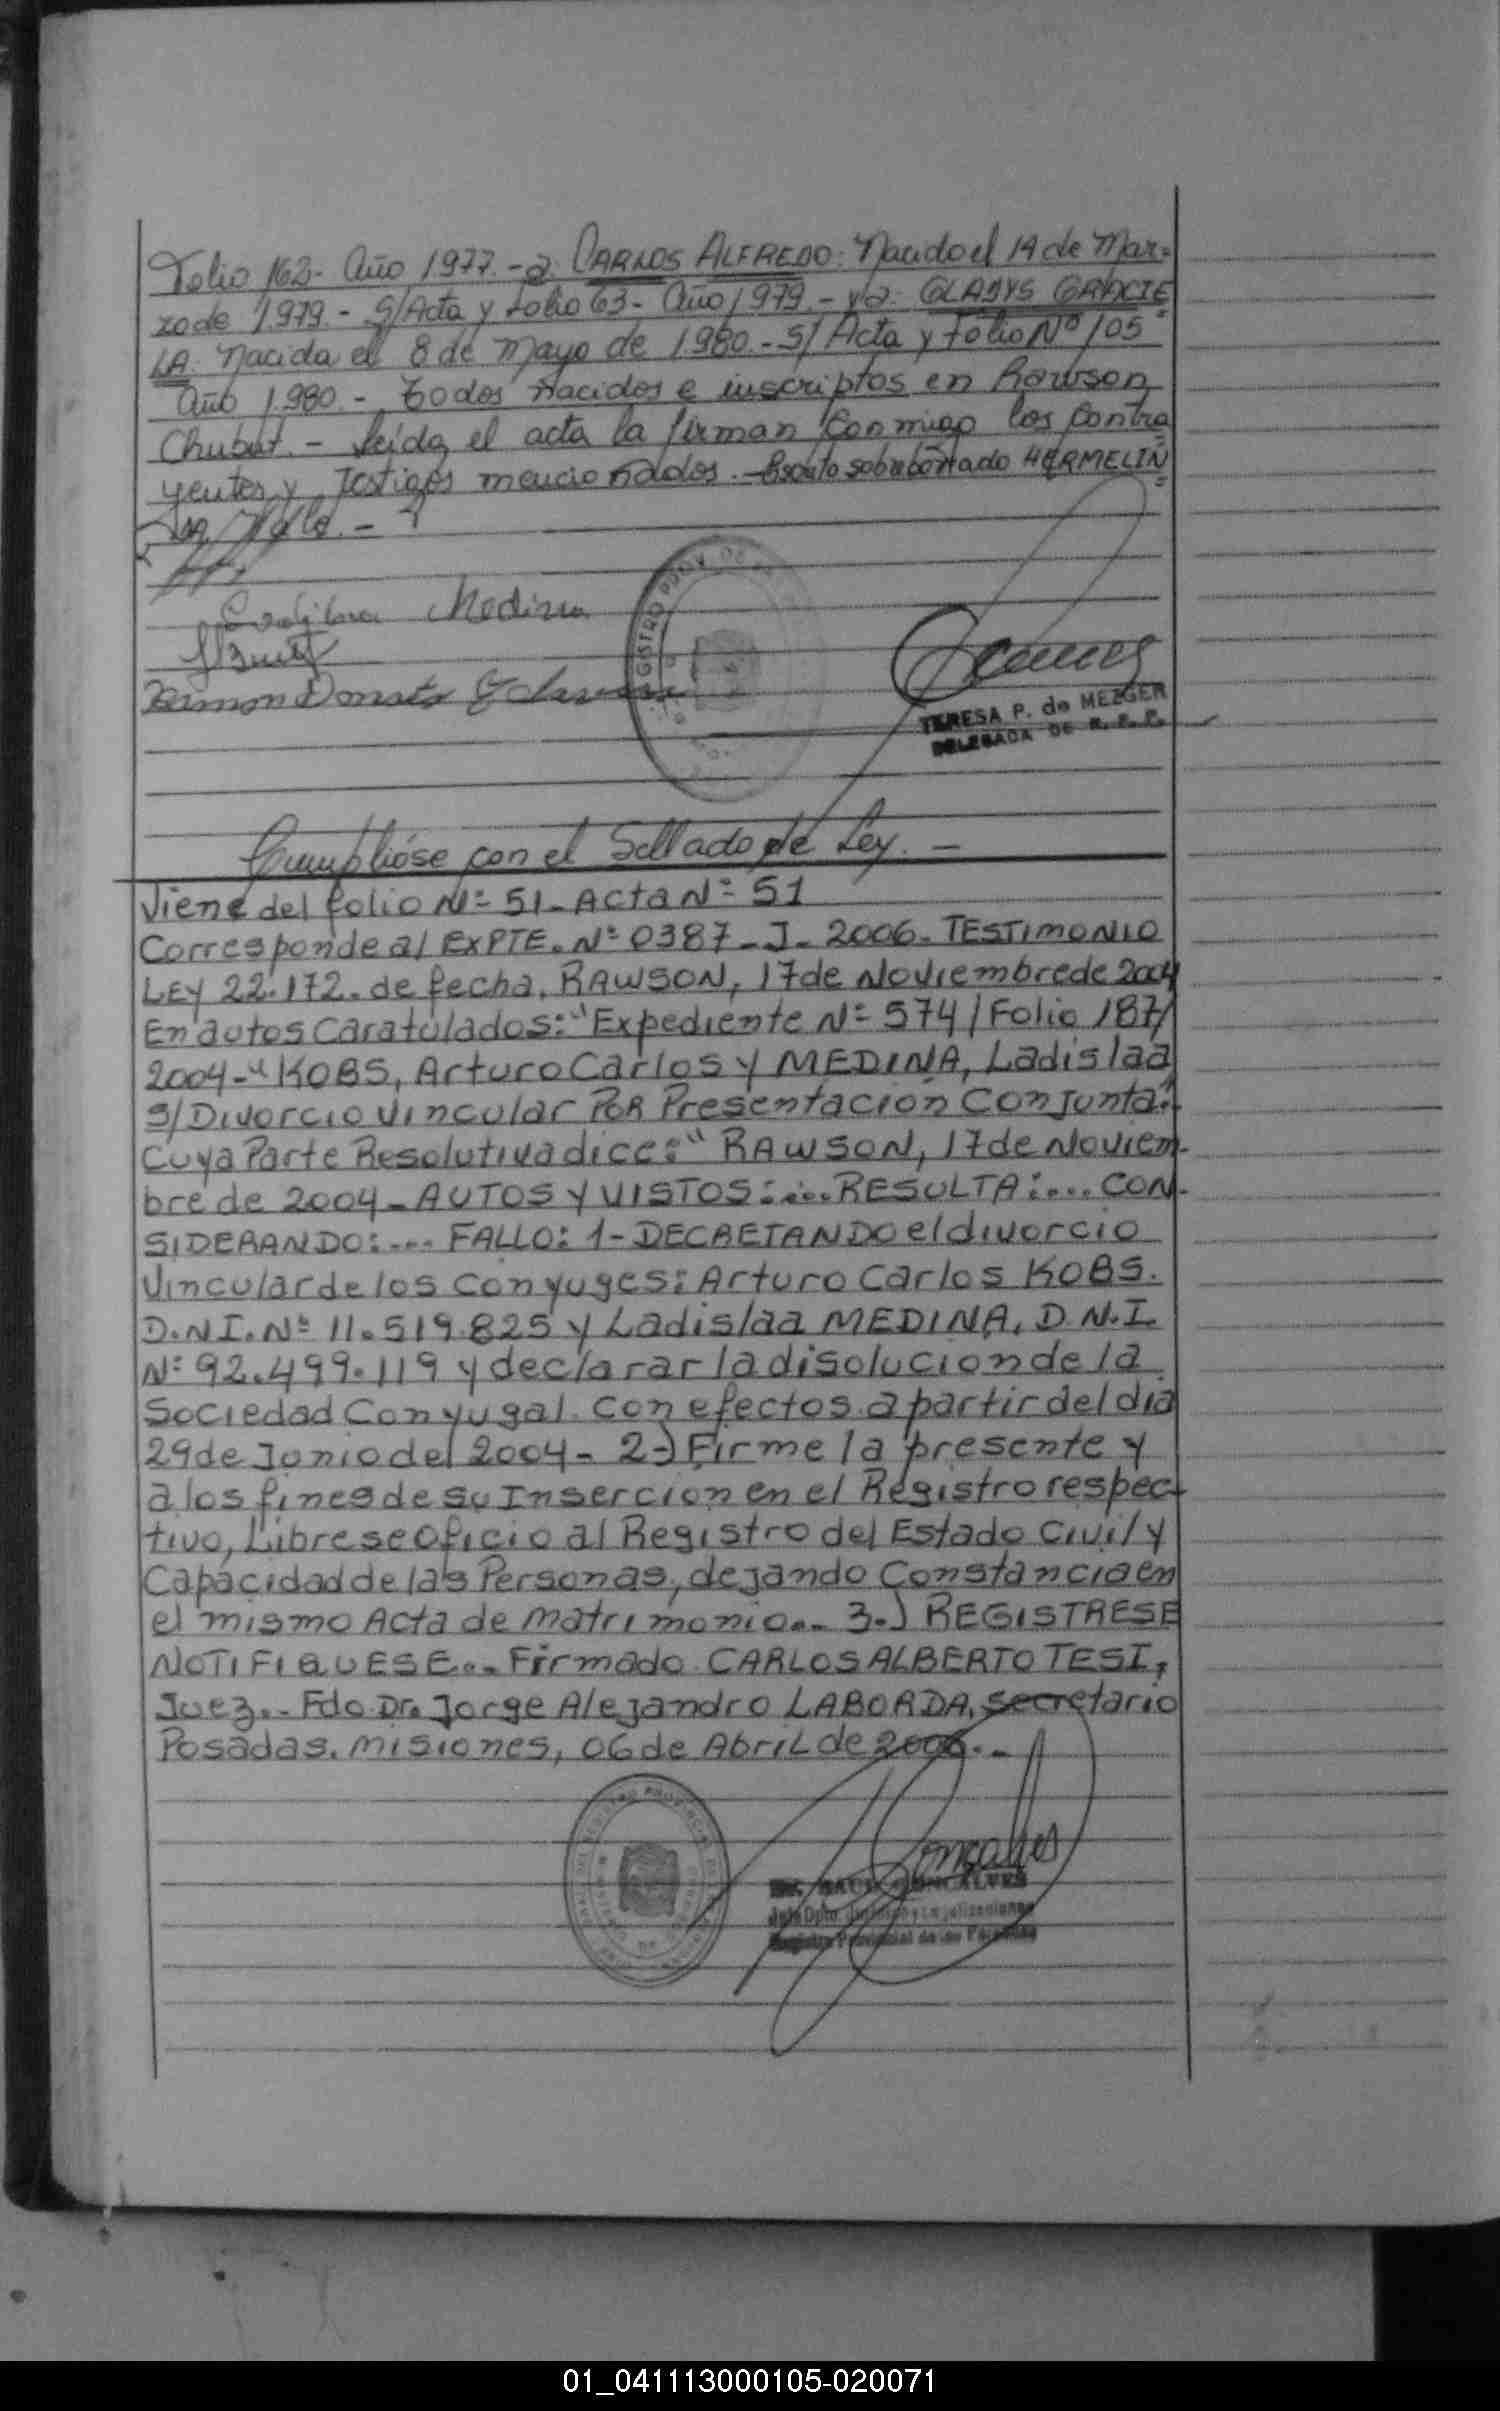 Folio 162- Año 1977.- a: CARLOS ALFREDO: Nacido el 14 de Mar=
zo de 1979.- S/Acta y Folio 63- Año 1979.- y a: GLADYS GRACIE
LA. Nacida el 8 de Mayo de 1980.- S/ Acta y Folio Nº 105
Año 1980.- todos nacidos e inscriptos en Rawson
Chubut.- Leída el acta la firman conmigo los contra
yentes y testigos mencionados.- Escrito sobreborrado HERMELIN
Vale.-
Ladislaa Medina
Ramon Donato
TERESA P. de MEZGER
DELEGADA DE R. P. P.
Cumplióse con el Sellado de Ley.-
Viene del folio Nº 51- Acta Nº 51
Corresponde al EXPTE. Nº 0387-J-2006- TESTIMONIO
LEY 22.172. de fecha, RAWSON, 17 de Noviembre de 2004
En autos Caratulados: "Expediente Nº 574/Folio 187/
2004-" KOBS, Arturo Carlos y MEDINA, Ladislaa
S/Divorcio Vincular POR Presentacion Conjunta".
Cuya Parte Resolutiva dice: "RAWSON, 17 de Noviem-
bre de 2004- AUTOS Y VISTOS:... RESULTA:... CON-
SIDERANDO:... FALLO: 1- DECRETANDO el divorcio
Vincular de los Conyuges: Arturo Carlos KOBS.
D.N.I. Nº 11.519.825 y Ladislaa MEDINA, D.N.I.
Nº 92.499.119 y declarar la disolucion de la
Sociedad Conyugal. Con efectos a partir del dia
29 de Junio del 2004- 2-) Firme la presente y
a los fines de su Insercion en el Registro respec-
tivo, Librese Oficio al Registro del Estado Civil y
Capacidad de las Personas, dejando Constancia en
el mismo Acta de Matrimonio.- 3.) REGISTRESE
NOTIFIQUESE.- Firmado. CARLOS ALBERTO TESI,
Juez.- Fdo. Dr. Jorge Alejandro LABORDA, Secretario
Posadas, Misiones, 06 de Abril de 2006.-
Registro Provincial de las Personas
01_041113000105-020071